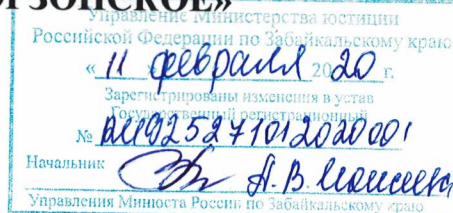 ЗОНСКОЕ»
Управление Министерства юстиции
Российской Федерации по Забайкальскому краю
« 11 » февраля 2020 г.
Зарегистрированы изменения в устав
Государственный регистрационный
№ RU925271012020001
Начальник А.В.
Управления Минюста России по Забайкальскому краю